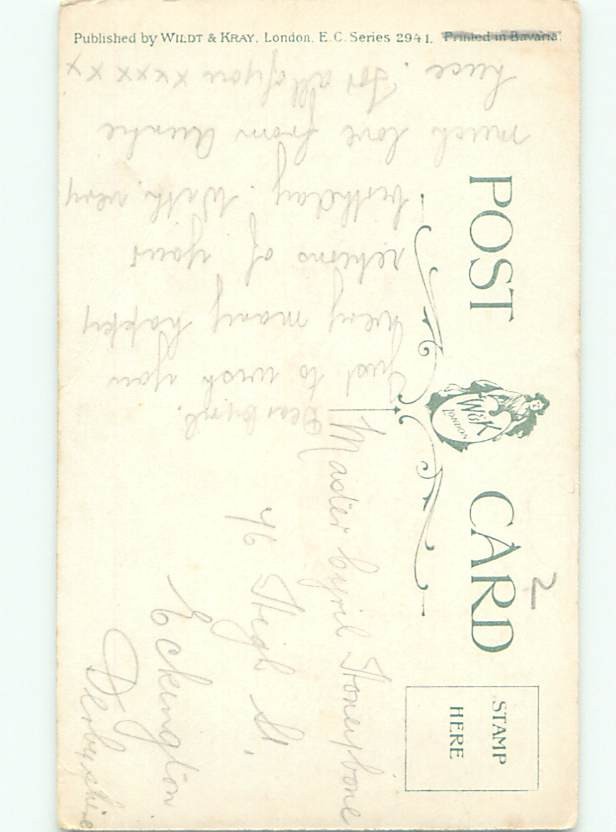 Published by WILDT & KRAY, London, E.C. Series 2941. Printed in Bavaria.
POST CARD
W&K
LONDON
STAMP
HERE
2
Dear Cyril.
Just to wish you
very many happy
returns of your
birthday. With very
much love from Auntie
for all of you xxxx x x
Master Cyril Honeybone
76 High St.
Eckington
Derbyshire